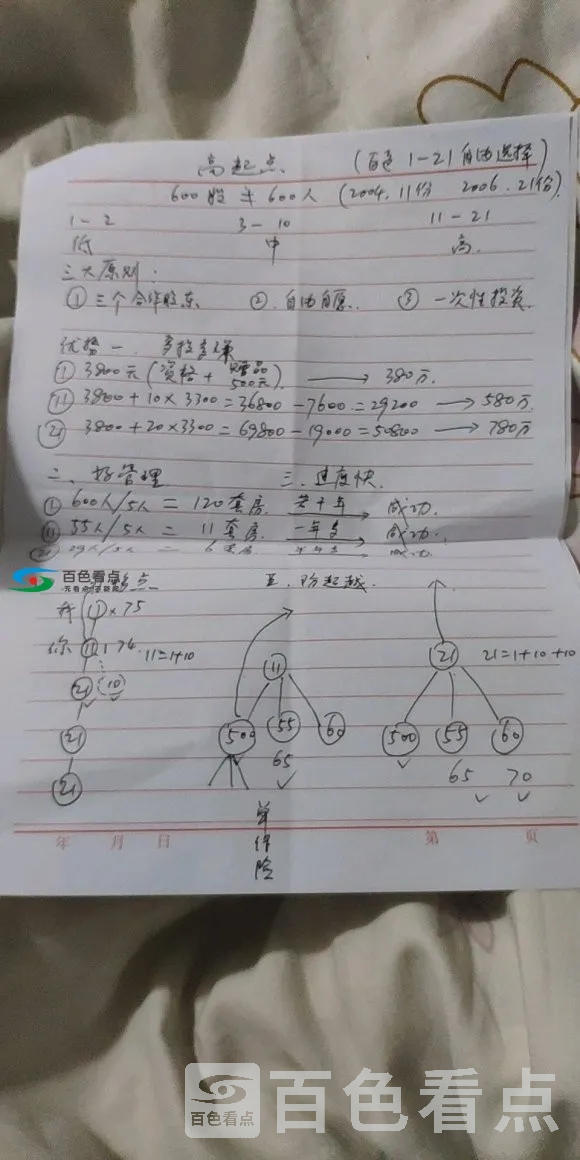 高起点 (百色 1-21 自由选择)
600股 ≠ 600人 (2004.11份 2006.21份)
1-2 3-10 11-21
低 中 高.
三大原则.
① 三个合作股东 ② 自由自愿. ③ 一次性投资
优势一. 多投多赚
① 3800元(资格+赠品500元). → 380万.
⑪ 3800+10×3300=36800-7600=29200 → 580万.
㉑ 3800+20×3300=69800-19000=50800 → 780万
二. 好管理 三. 速度快.
① 600人/5人 = 120套房. 若干年 成功.
⑪ 55人/5人 = 11套房. 一年多 成功.
㉑ 29人/5人 = 6套房. 成功.
百色看点
点 五. 防超越.
① × 75
你 ⑪ 11=1+10 ⑪ ㉑ 21=1+10+10
㉑ (10)
㉑ 500 55 60 500 55 60
65 65 70
㉑
单保险
年 月 日 第 页
百色看点
百色看点